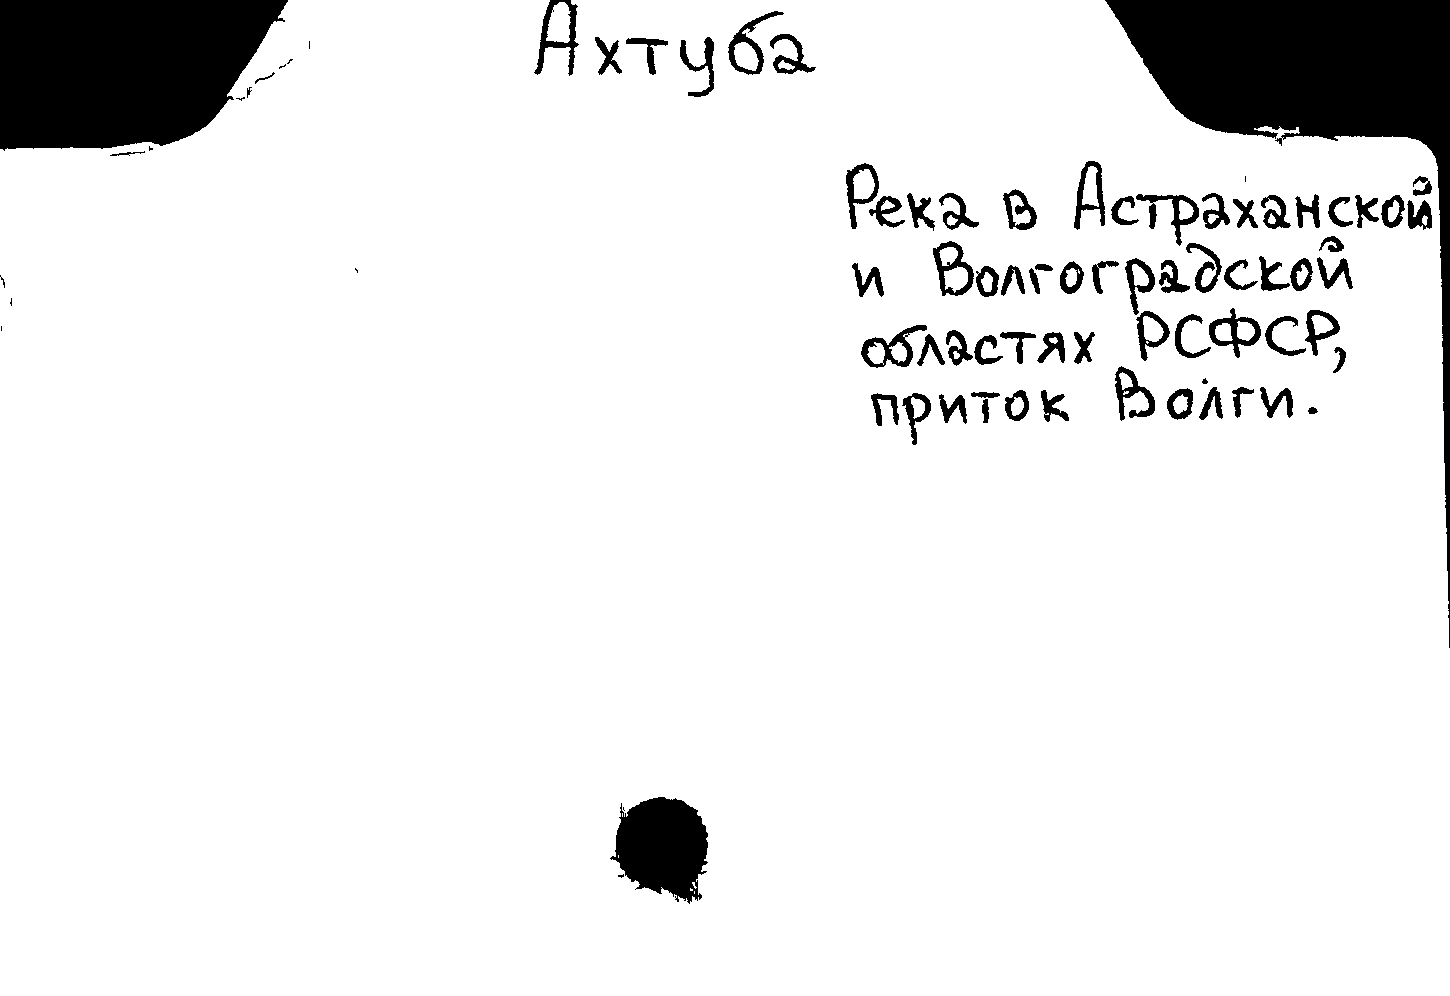 Ахтуба
Река в Астраханской
и Волгоградской
областях РСФСР,
приток Волги.